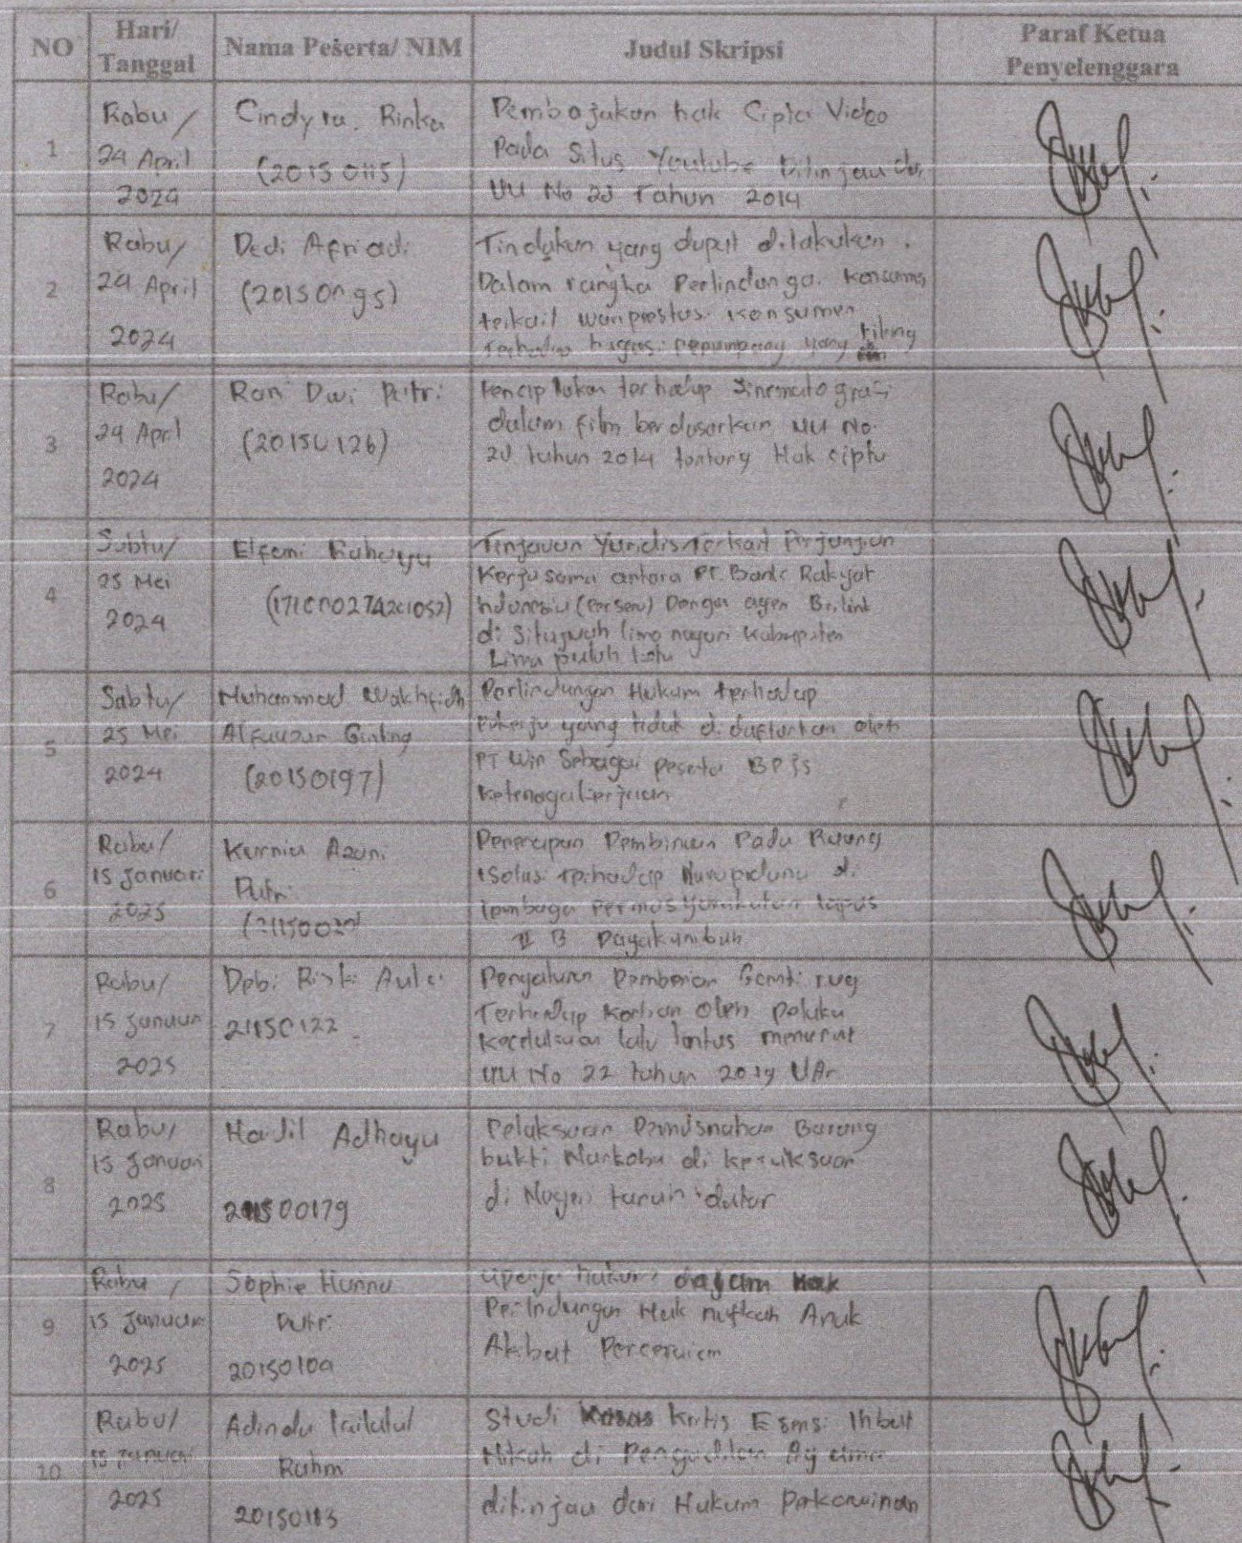 NO
Hari/
Tanggal
Nama Peserta/ NIM
Judul Skripsi
Paraf Ketua
Penyelenggara
1
Rabu /
24 April
2024
Cindyra. Rinka
(20150115)
Pembajakan hak Cipta Video
Pada Situs Youtube Ditinjau dr.
UU No 28 Tahun 2014
2
Rabu/
24 April
2024
Dedi Afriadi
Tindakan yang dapat dilakukan
Dalam rangka Perlindunga. Konsumen
terkait wanprestasi Konsumen
yang tilang
3
Rabu/
24 April
2024
Rani Dwi Putri
(20150126)
terhadap Sinematografi
dalam film berdasarkan UU No.
28 tahun 2014 tentang Hak cipta
4
Sabtu/
25 Mei
2024
Elfemi Rahayu
Tinjauan Yuridis Terkait Perjanjian
Kerjasama antara PT. Bank Rakyat
Indonesia (Persero) Dengan agen Brilink
di Situjuah limo nagari Kabupaten
Lima puluh kota
5
Sabtu/
25 Mei
2024
Muhammad
Alfauzan Ginting
(20150197)
Perlindungan Hukum terhadap
Pekerja yang tidak di daftarkan oleh
PT Win Sebagai peserta BPJS
Ketenagakerjaan
6
Rabu/
15 Januari
2025
Kurnia Azani
Putri
Penerapan Pembinaan Pada Ruang
isolasi terhadap Narapidana di
lembaga Permasyarakatan
II B Payakumbuh
7
Rabu/
15 Januari
2025
Debi Riski Aulia
21150122
Pemberian Ganti rugi
Terhadap Korban oleh pelaku
lalu lintas menurut
UU No 22 tahun
8
Rabu/
15 Januari
2025
Hadil Adhayu
Pelaksaan Pemusnahan Barang
bukti Narkoba di kejaksaan
di Nageri tanah datar
9
Rabu /
15 Januari
2025
Sophie Hanna
Putri
hukum dalam
Perlindungan Hak nafkah Anak
Akibat Perceraian
10
Rabu/
15 Januari
2025
Adinda lailatul
Rahm
20150113
Studi kritis Esensi Ihbat
Nikah di Pengadilan Agama
ditinjau dari Hukum Perkawinan